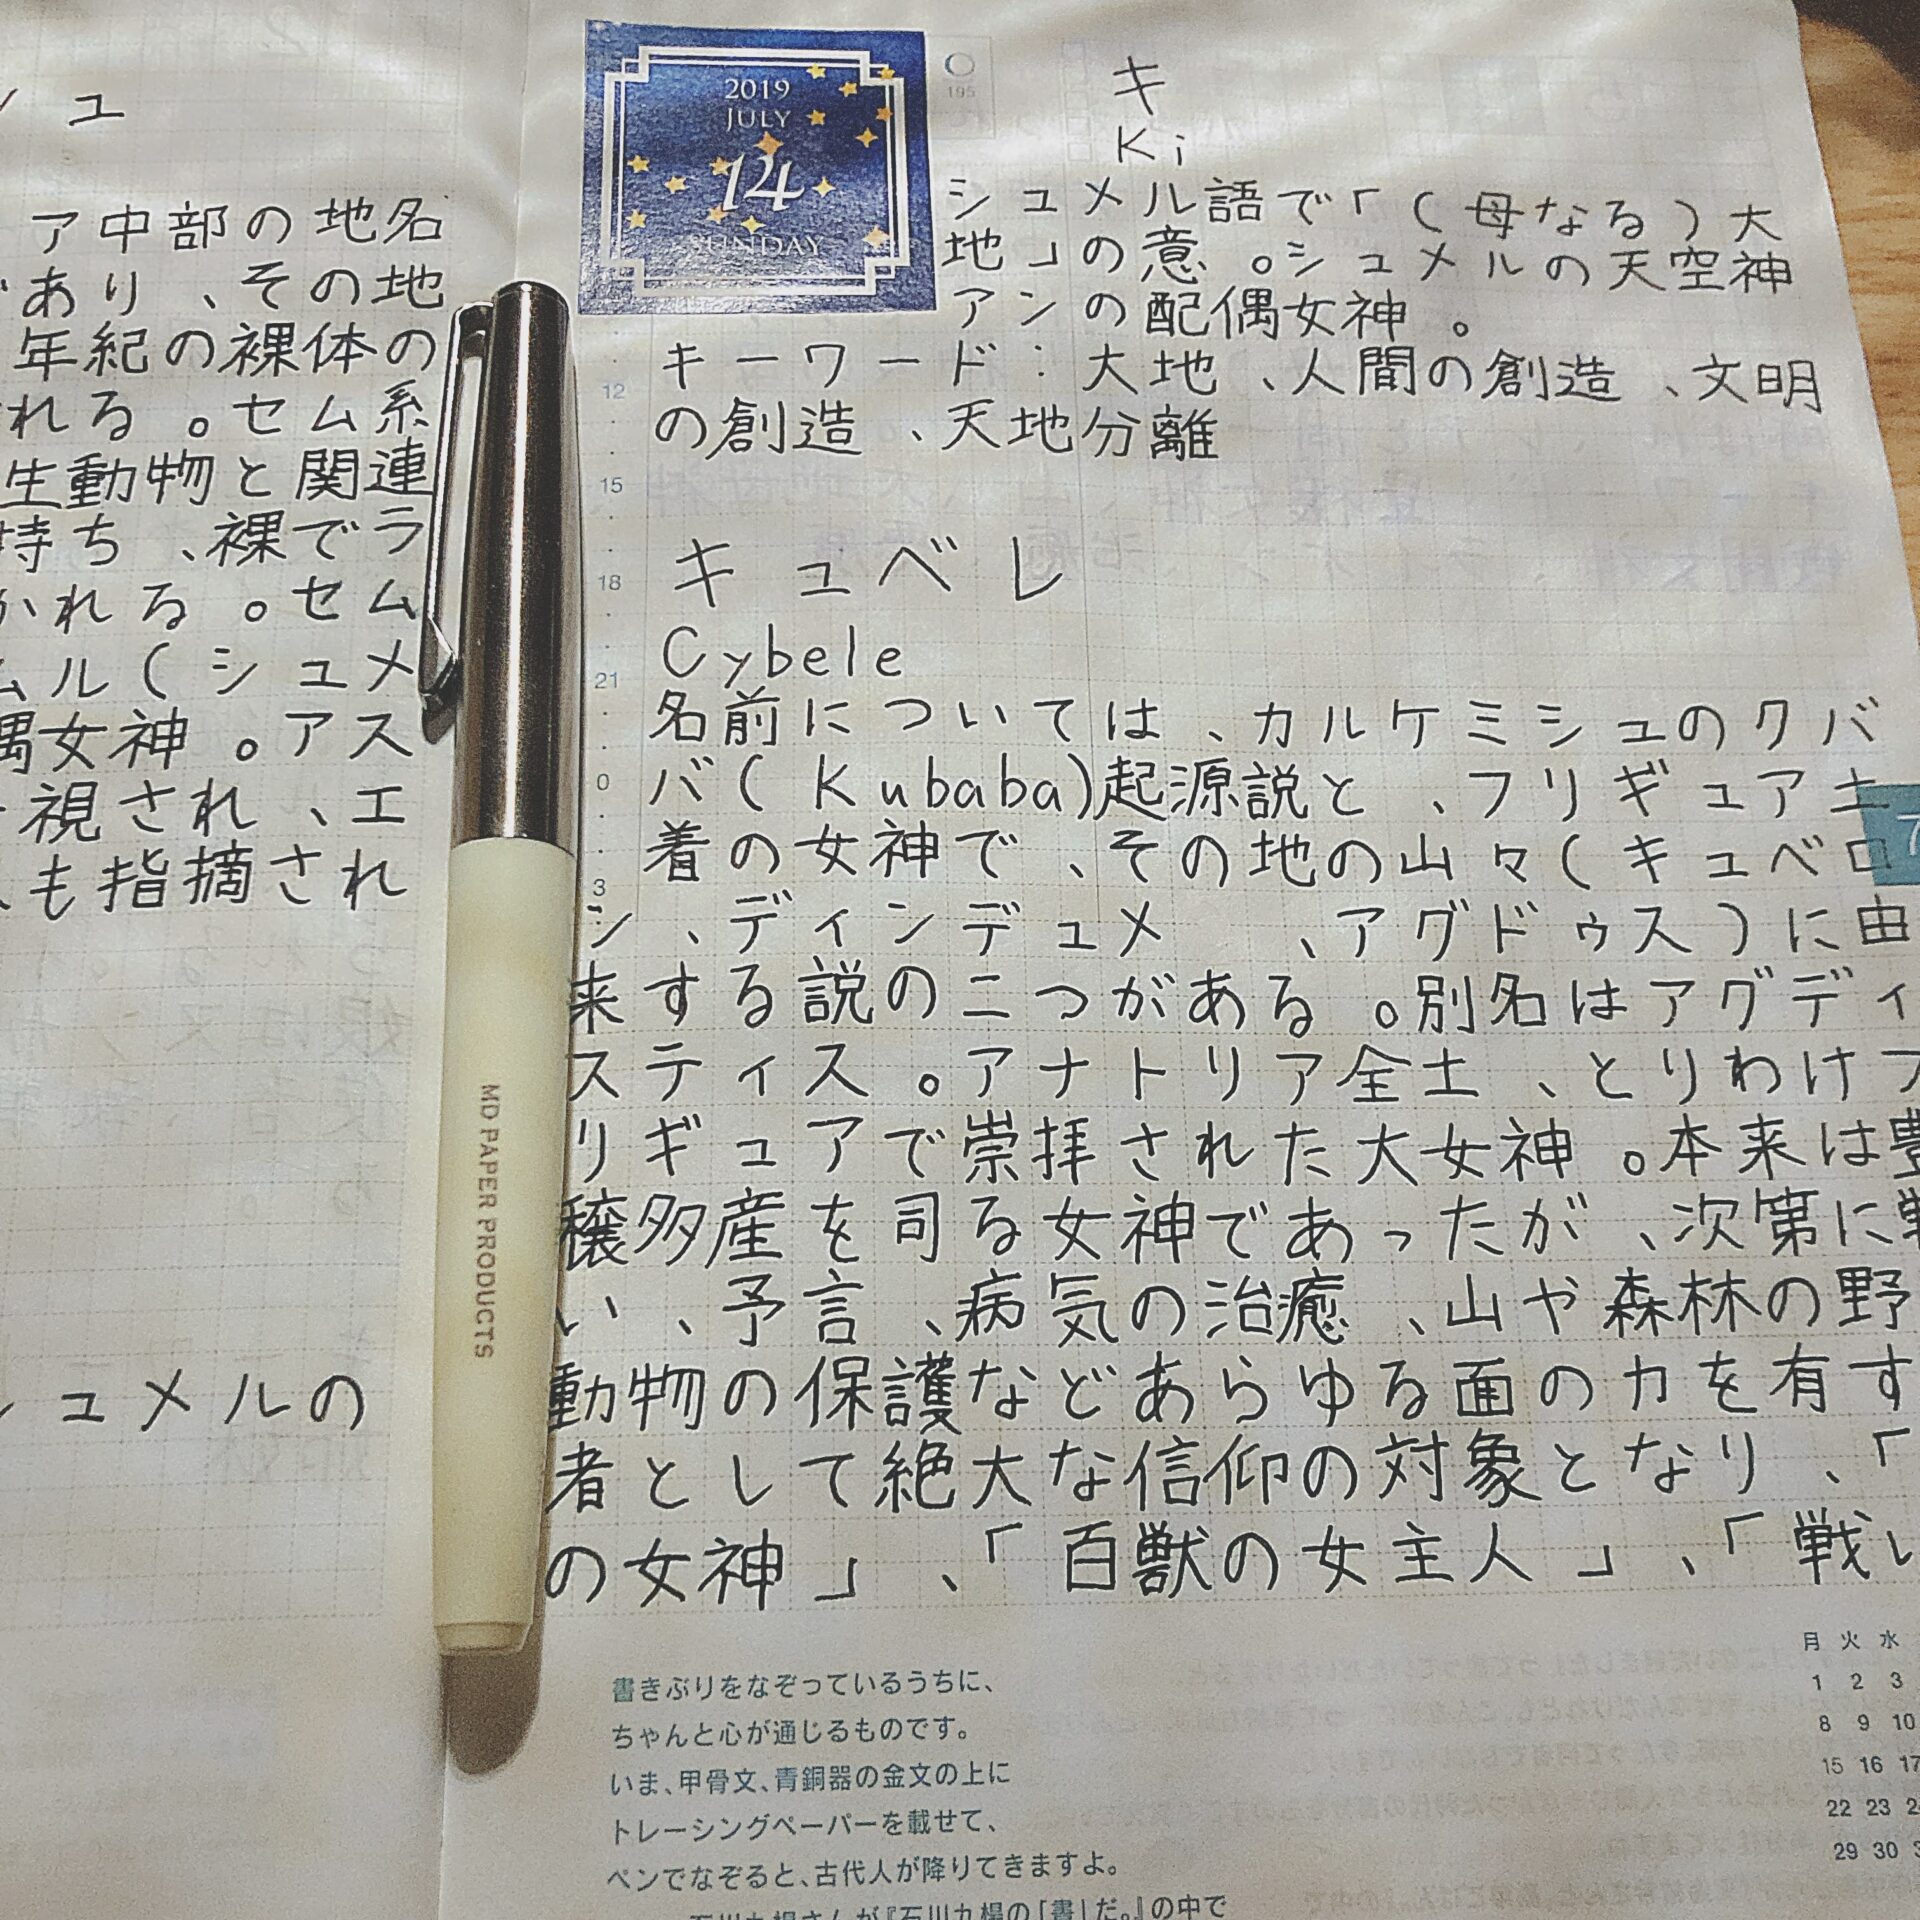 シュ
ア中部の地名
であり、その地
年紀の裸体の
れる。セム系
生動物と関連
持ち、裸でラ
かれる。セム
ムル(シュメ
偶女神。アス
視され、エ
も指摘され
シュメルの
MD PAPER PRODUCTS
2019
JULY
14
SUNDAY
195
キ
Ki
シュメル語で「(母なる)大
地」の意。シュメルの天空神
アンの配偶女神。
キーワード:大地、人間の創造、文明
の創造、天地分離
12
15
18
21
0
3
キュベレ
Cybele
名前については、カルケミシュのクバ
バ(Kubaba)起源説と、フリギュア土
着の女神で、その地の山々(キュベロ
ン、ディンデュメ、アグドゥス)に由
来する説の二つがある。別名はアグディ
スティス。アナトリア全土、とりわけフ
リギュアで崇拝された大女神。本来は豊
穣多産を司る女神であったが、次第に戦
い、予言、病気の治癒、山や森林の野
動物の保護などあらゆる面の力を有す
者として絶大な信仰の対象となり、「
の女神」、「百獣の女主人」、「戦い
7
書きぶりをなぞっているうちに、
ちゃんと心が通じるものです。
いま、甲骨文、青銅器の金文の上に
トレーシングペーパーを載せて、
ペンでなぞると、古代人が降りてきますよ。
石川九楊さんが『石川九楊の「書」だ。』の中で
月 火 水
1 2 3
8 9 10
15 16 17
22 23
29 30